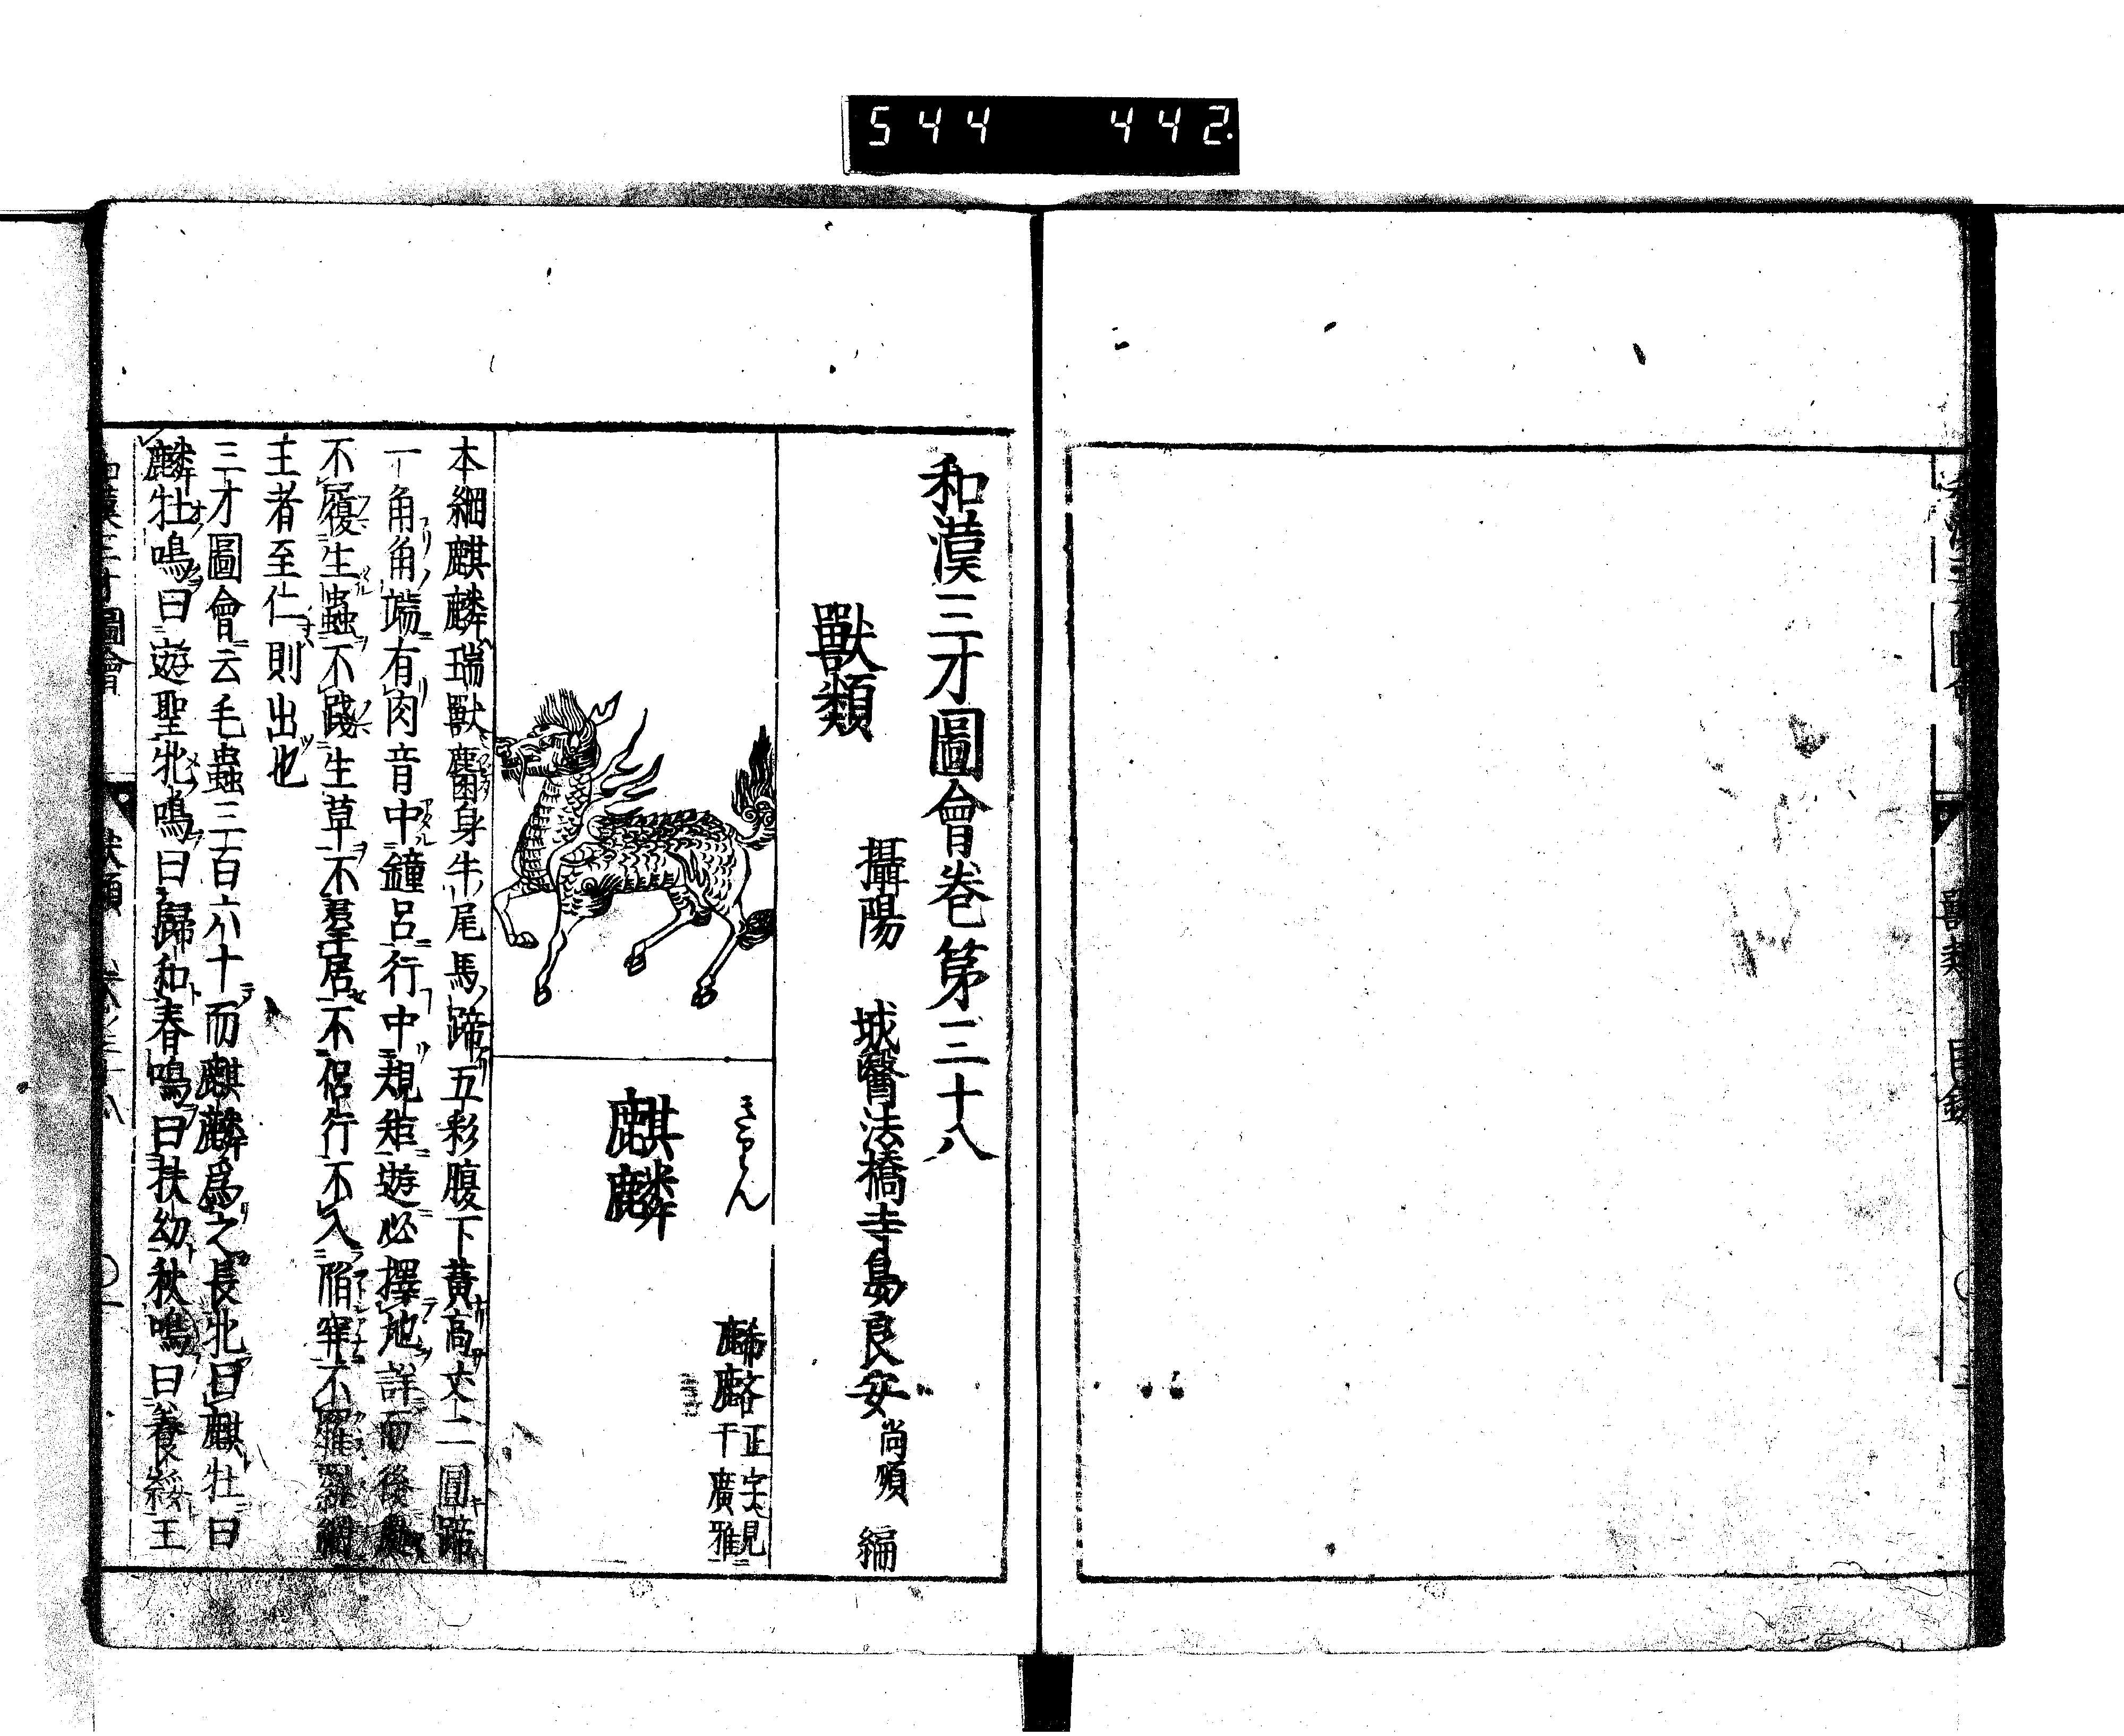 544 442
和漢三才圖會卷第三十八
攝陽 城醫法橋寺島良安尚順 編
獸類
きりん
麒麟
正字見
于廣雅
本綱麒麟瑞獸麕身牛尾馬蹄五彩腹下黃高丈二圓蹄
一角角端有肉音中鐘呂行中規矩遊必擇地詳而後處
不履生蟲不踐生草不羣居不侶行不入陷穽不罹羅網
王者至仁則出也
三才圖會云毛蟲三百六十而麒麟爲之長牝曰麒牡曰
麟牡鳴曰遊聖牝鳴曰歸和春鳴曰扶幼秋鳴曰養綏王